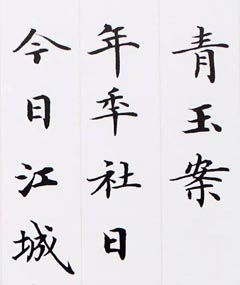 青玉案
年秊社日
今日江城